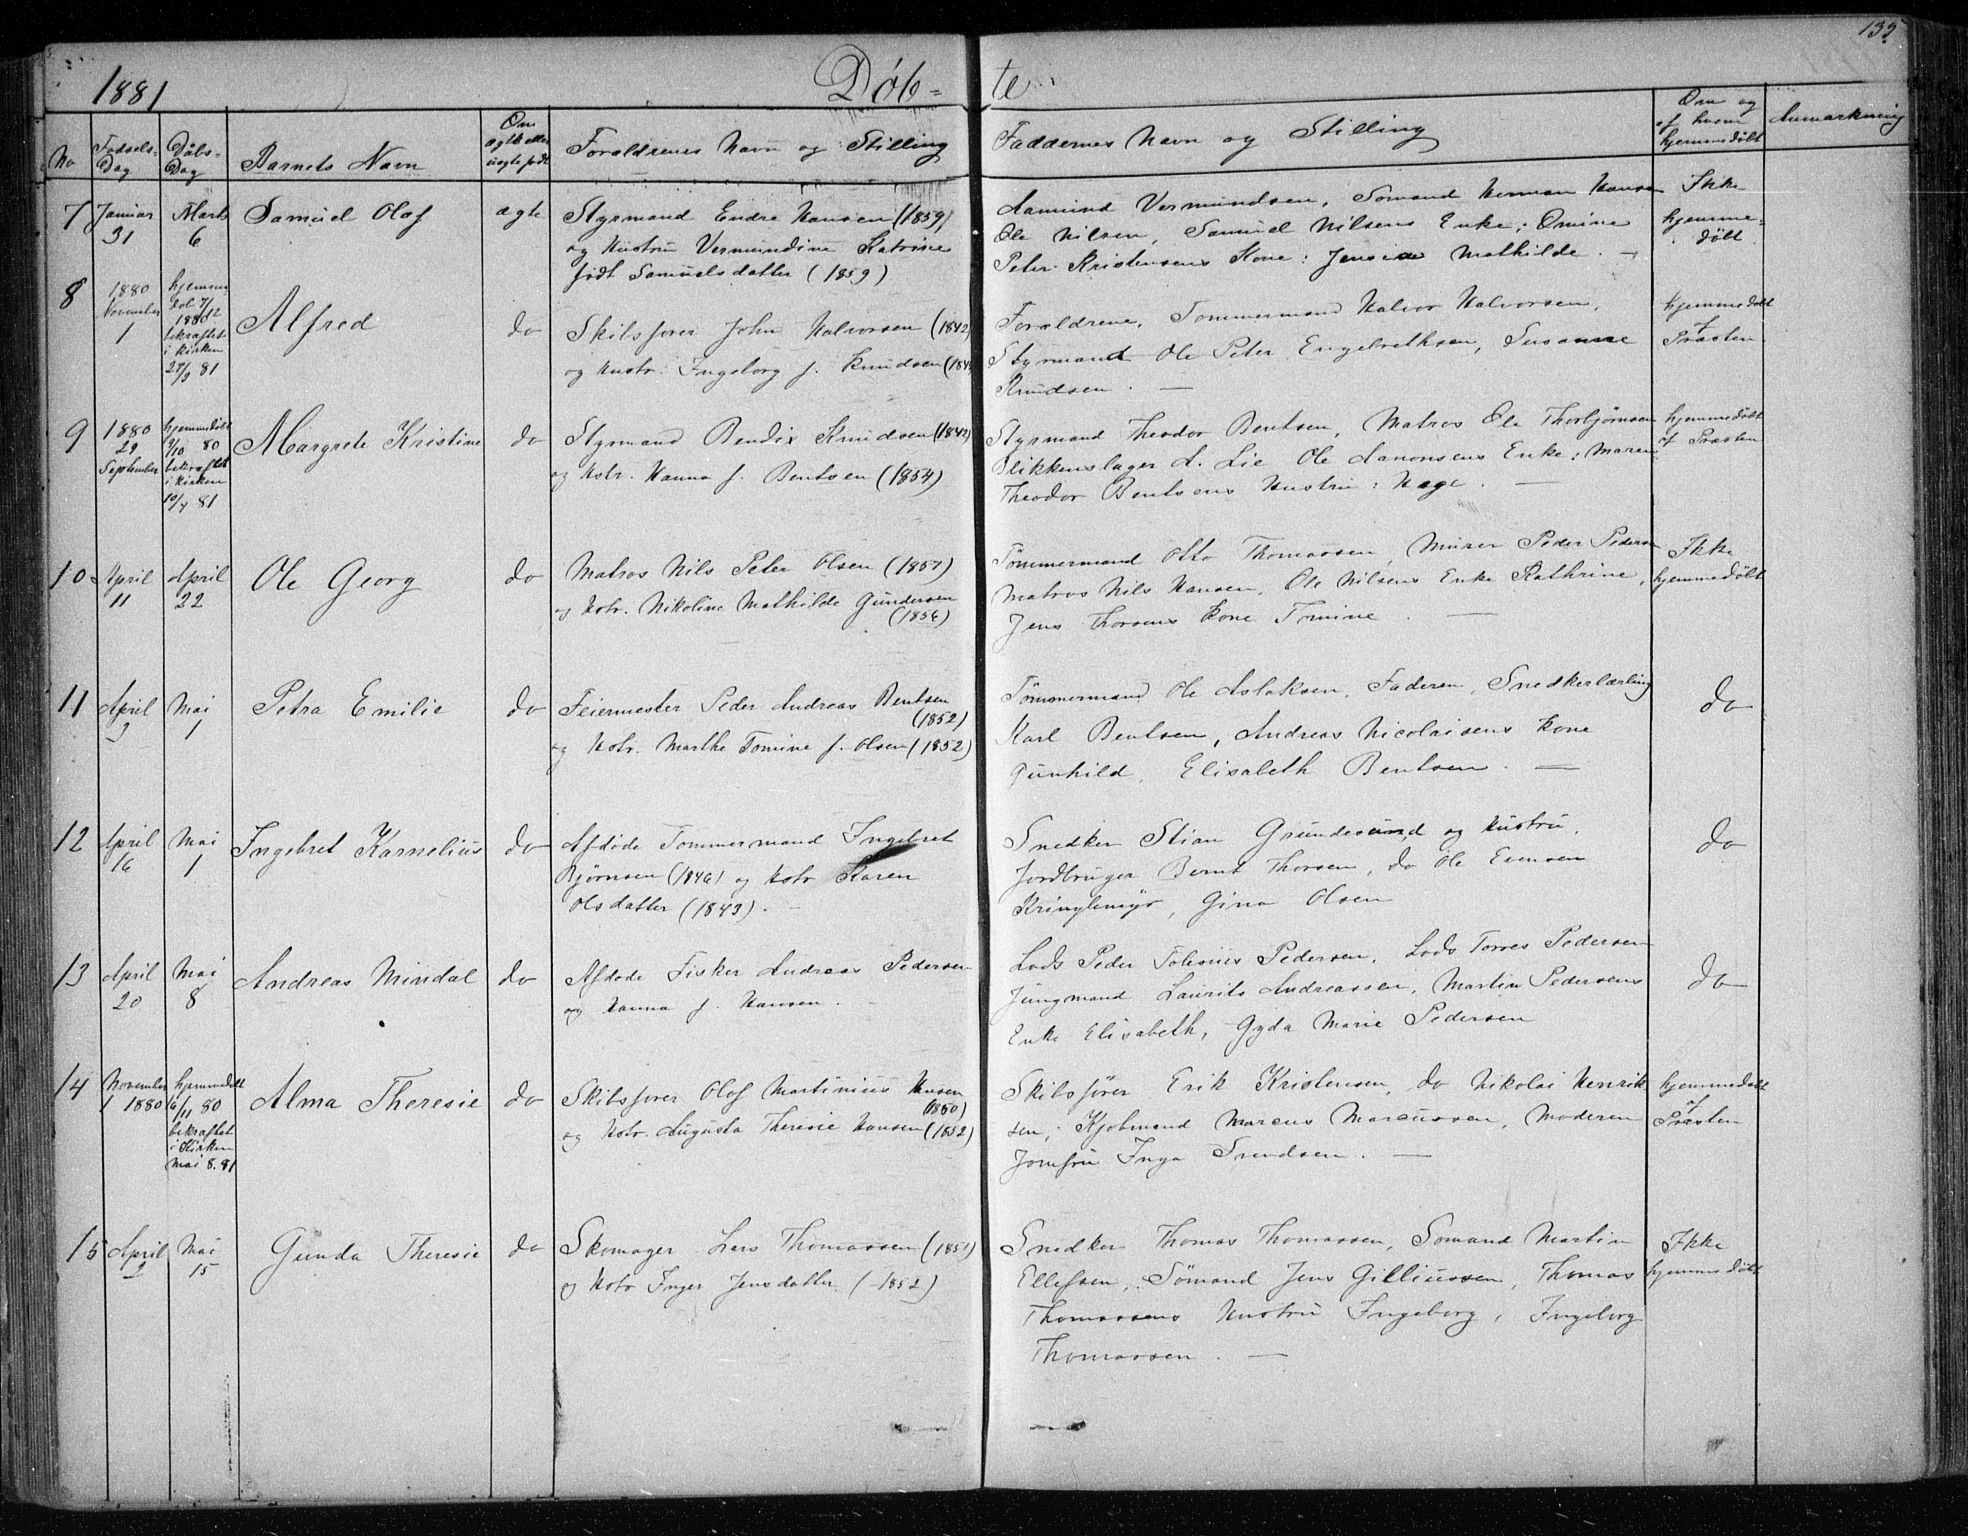 1881 Døb- te 135
No
Fødsels-
Dag
Døbs-
Dag
Barnets Navn
Om
ægte eller
uægte født
Forældrenes Navn og Stilling
Faddernes Navn og Stilling
Om og
af hvem
hjemmedøbt
Anmærkning
7
Januar
31
Marts
6
Samuel Olaf
ægte
Styrmand Endre Hansen (1859)
og Hustru Vermundine Katrine
født Samuelsdatter (1859)
Aamund Vermundsen, Sømand Herman Hansen
Ole Nilsen, Samuel Nilsens Enke: Omine
Peter Kristensens Kone: Jensine Mathilde. —
Ikke
hjemme-
døbt
8
1880
November
1
hjemme
døb 7/12
1880
bekræftet
i Kirken
27/3 81
Alfred
do
Skibsfører John Halvorsen (1842)
og Hustr: Ingeborg f. Knudsen
Forældrene, Tømmermand Halvor Halvorsen,
Styrmand Ole Peter Engebrethsen, Susanne
Knudsen. —
hjemmedøbt
af
Præsten
9
1880
29
September
hjemmedøbt
9/10 80
bekræftet
i Kirken
10/4 81
Margrete Kristine
do
Styrmand Bendix Knudsen (1842)
og Hstr. Hanna f. Bentsen (1854)
Styrmand Theodor Bentsen, Matros Ole Thorbjørnsen
Blikkenslager A. Lie Ole Aanonsens Enke: Maren
Theodor Bentsens Hustru: Hage. —
hjemmedøbt
af Præsten
10
April
11
April
22
Ole Georg
do
Matros Nils Peter Olsen (1857)
og Hstr. Nikoline Mathilde Gundersen
(1856)
Tömmermand Otto Thomassen, Murer Peder Pedersen
Matros Nils Hansen, Ole Nilsens Enke Kathrine,
Jens Thorsens Kone Tomine. —
Ikke
hjemmedøbt
11
April
3
Mai
1
Petra Emilie
do
Feiermester Peder Andreas Bentsen
(1852)
og Hstr. Marthe Tomine f. Olsen (1852)
Tömmermand Ole Aslaksen, Faderen, Snedkerlærling
Karl Bentsen, Andreas Nicolaisens Kone
Gunhild, Elisabeth Bentsen. —
do
12
April
16
Mai
1
Ingebret Karnelius
do
Afdøde Tømmermand Ingebret
Bjørnsen (1846) og Hstr Karen
Olsdatter (1843). —
Snedker Stian Grundesund og Hustru,
Jordbruger Bernt Thorsen, do Ole Evensen
Kringlemyr, Gina Olsen
do
13
April
20
Mai
8
Andreas Mindal
do
Afdøde Fisker Andreas Pedersen
og Hanna f. Hansen. —
Lods Peder Pedersen, Lods Torres Pedersen
Jungmand Laurits Andreassen, Martin Pedersens
Enke Elisabeth, Gyda Marie Pedersen
do
14
November
1 1880
hjemmedøbt
6/11 80
bekræftet
i Kirken
Mai 8. 81
Alma Theresie
do
Skibsfører Olaf Martinius Hansen
(1850)
og Hstr. Augusta Theresie Hansen (1852)
Skibsfører Erik Kristensen, do Nikolai Henrik-
sen, Kjøbmand Marcus Marcussen, Moderen
Jomfru Inga Svendsen. —
hjemmedøbt
af
Præsten
15
April
2
Mai
15
Gunda Theresie
do
Skomager Lars Thomassen (1851)
og Hstr Inger Jensdatter (1852)
Snedker Thomas Thomassen, Sømand Martin
Ellefsen, Sømand Jens Gilliussen, Thomas
Thomassens Hustru Ingeborg, Ingeborg
Thomassen. —
Ikke
hjemmedøbt